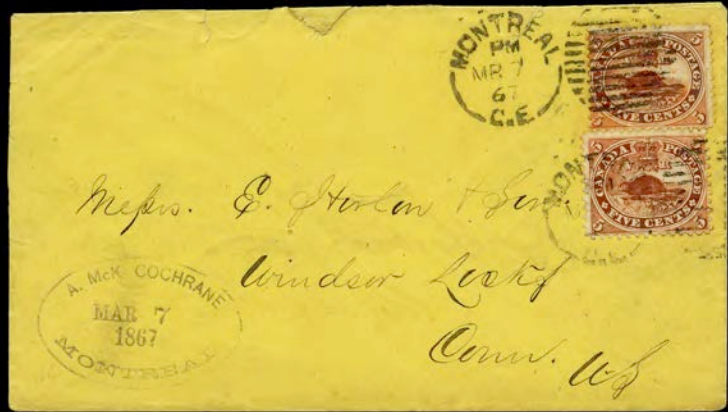 MONTREAL
PM
MR 7
67
C.E
5 CANADA POSTAGE 5
5 FIVE CENTS 5
5 CANADA POSTAGE 5
5 FIVE CENTS 5
MON
Messrs. E. Horton & Son.
Windsor Locks
Conn. US
A. McK. COCHRANE
MAR 7
1867
MONTREAL